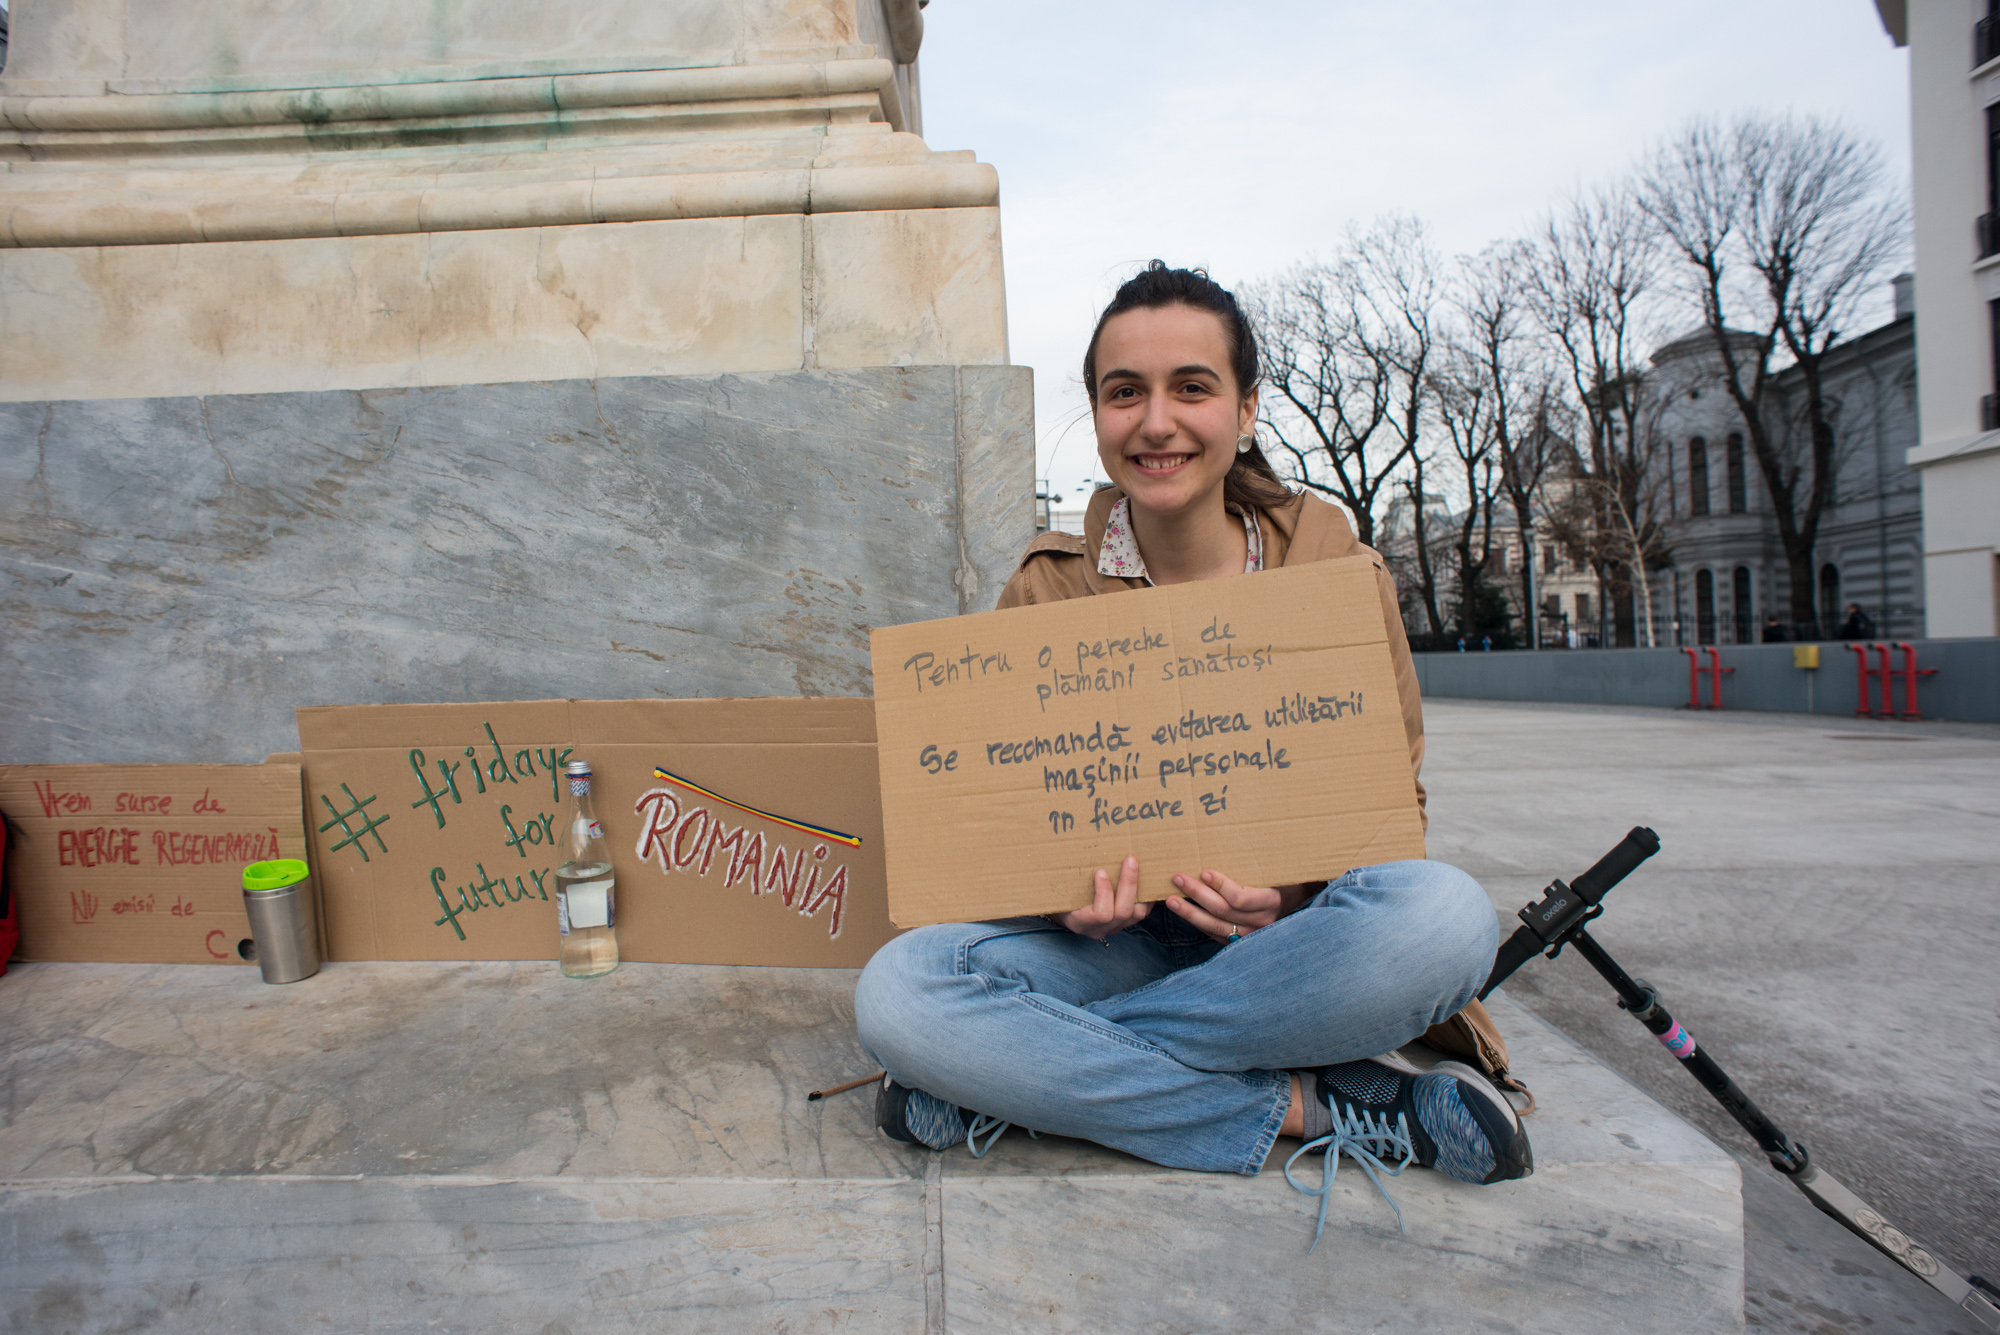 Vrem surse de
ENERGIE REGENERABILĂ
NU emisii de
C
# fridays
for
futur
ROMANIA
Pentru o pereche de
plămâni sănătoși
Se recomandă evitarea utilizării
mașinii personale
în fiecare zi
oxelo